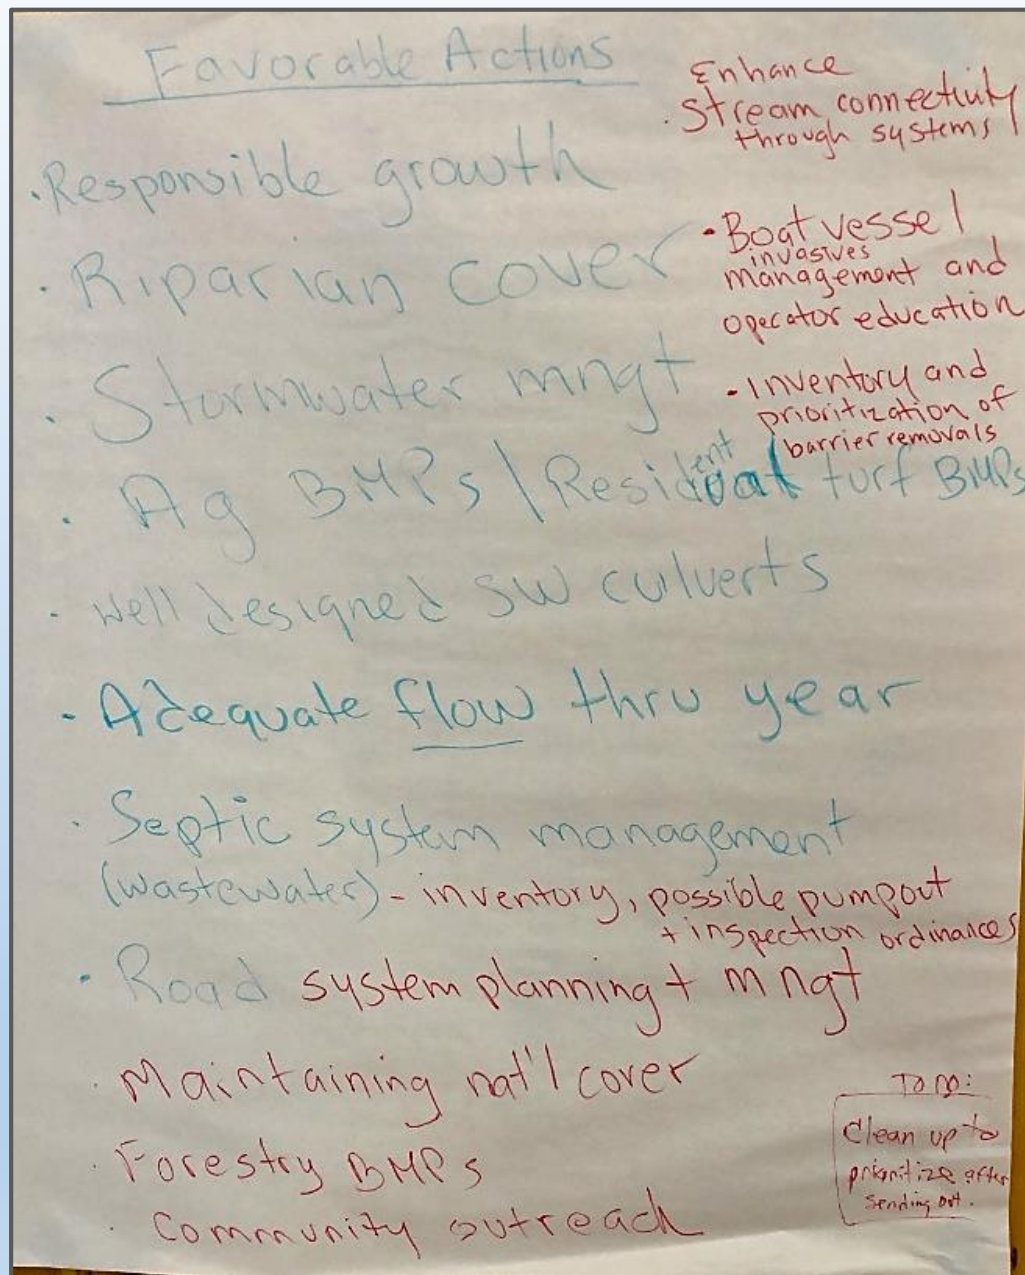 Favorable Actions
· Responsible growth
· Riparian cover
· Stormwater mngt
· Ag BMPs / Resident turf BMPs
· Well designed SW culverts
· Adequate flow thru year
· Septic system management
(wastewater) - inventory, possible pumpout
+ inspection ordinances
· Road system planning + mngt
· Maintaining nat'l cover
· Forestry BMPs
· Community outreach
· Enhance
Stream connectivity
through systems
· Boat vessel
invasives
management and
operator education
- Inventory and
prioritization of
barrier removals
To Do:
Clean up to
prioritize after
sending out.